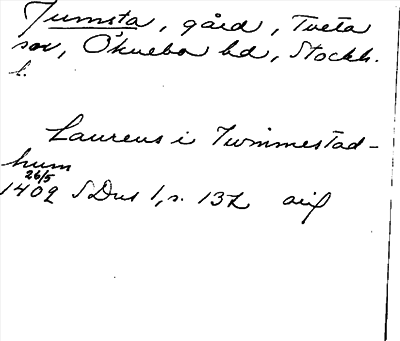 Jumsta, gård, Tveta
sn, Öknebo hd, Stockh.
l.
Laurens i Iwmmestad-
hum
26/5
1409 SDns 1, s. 132 avif